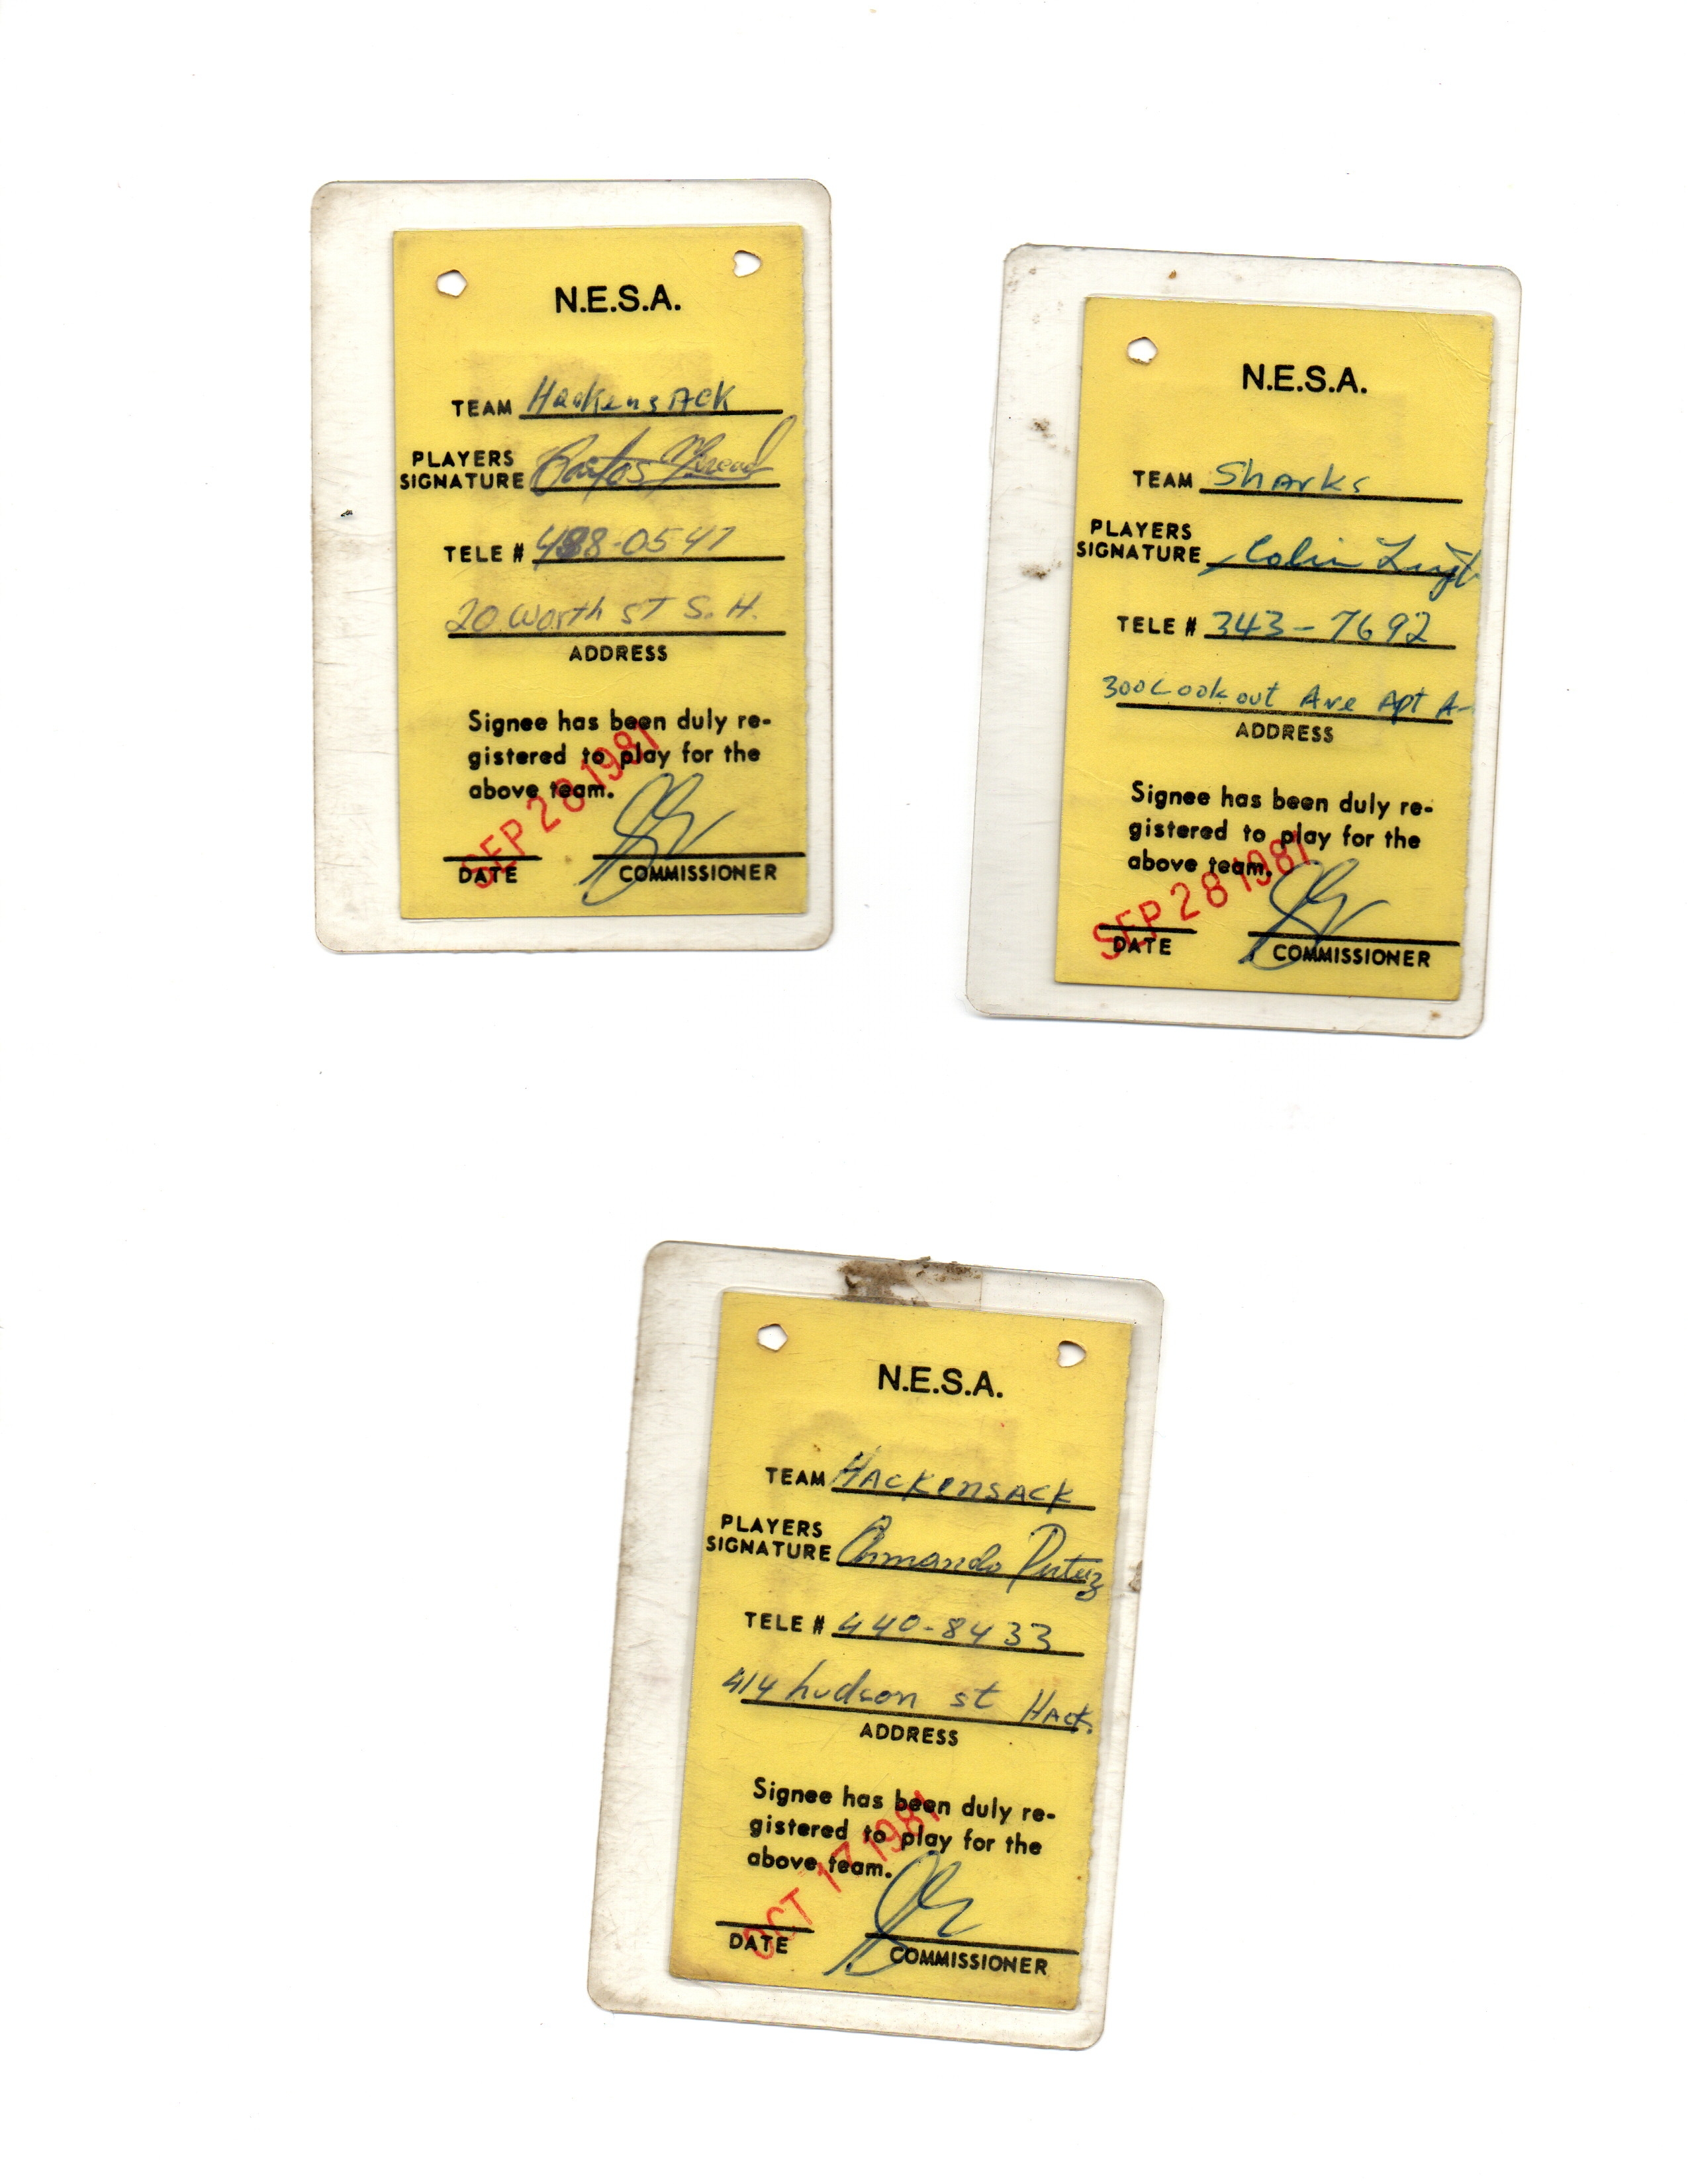 N.E.S.A.
TEAM Hackensack
PLAYERS
SIGNATURE Carlos
TELE # 488-0547
20 Worth ST S. H.
ADDRESS
Signee has been duly re-
gistered to play for the
above team.
SEP 28 1981
DATE COMMISSIONER
N.E.S.A.
TEAM Sharks
PLAYERS
SIGNATURE Colin
TELE # 343-7692
300 Lookout Ave Apt A-
ADDRESS
Signee has been duly re-
gistered to play for the
above team.
SEP 28 1981
DATE COMMISSIONER
N.E.S.A.
TEAM HACKENSACK
PLAYERS
SIGNATURE Armando
TELE # 440-8433
414 hudson st HACK.
ADDRESS
Signee has been duly re-
gistered to play for the
above team.
OCT 17 1981
DATE COMMISSIONER